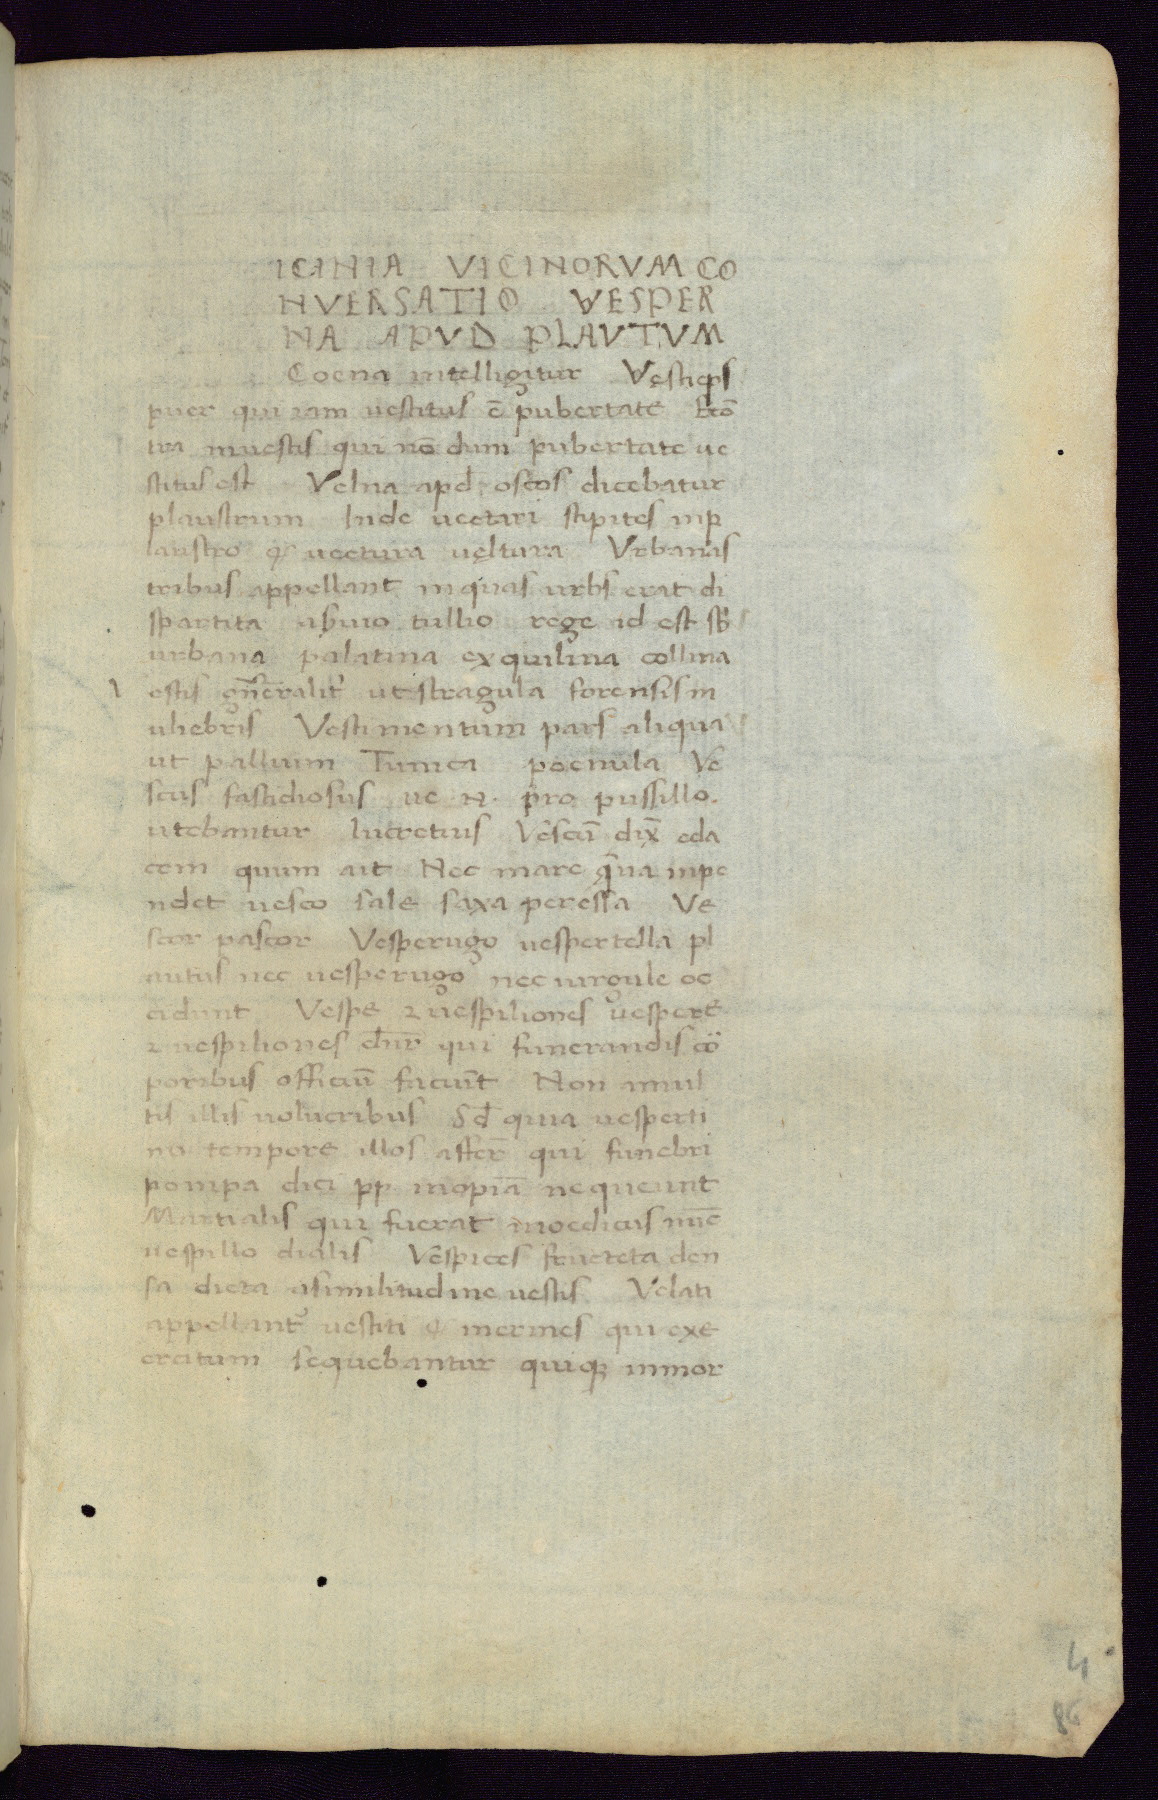 ICINIA VICINORVM CO
NVERSATIO VESPER
NA APVD PLAVTVM
Coena intelligitur Vesticps
puer qui iam uestitus ē pubertate Ecō
tra inuestis qui nō dum pubertate ue
stitus est Velna apd oscos dicebatur
plaustrum Inde uectari stipites inp
laustro & uectura ueltura Vrbanas
tribus appellant in quas urbs erat di
spartita asuio tullio rege id est sb
urbana palatina exquilina collina
V estis gn̄eralit' ut stragula forensis m
uliebris Vestimentum pars aliqua
ut pallium Tunica poenula Ve
scus fastidiosus ue N. pro pussillo.
utebantur lucretius Vescū dix̄ eda
cem quum ait Nec mare q̄ua inpe
ndet uesco sale saxa peressa Ve
scor pascor Vesperugo uespertella pl
autus nec uesperugo nec uirgule oc
cidunt Vespe & uespiliones uespere
& uespiliones dnr̄ qui funerandis cō
poribus officiū faciūt Non amul
tis illis uolucribus Sd quia uesperti
no tempore illos affer̄ qui funebri
pompa dici pp inopiā nequeunt
Martialis qui fuerat moedicus nūc
uespillo dialis Vespices fructeta den
sa dicta asimilitudine uestis Velati
appellant' uestiti & inermes qui exe
ercitum sequebantur quiq; inmor
4
86